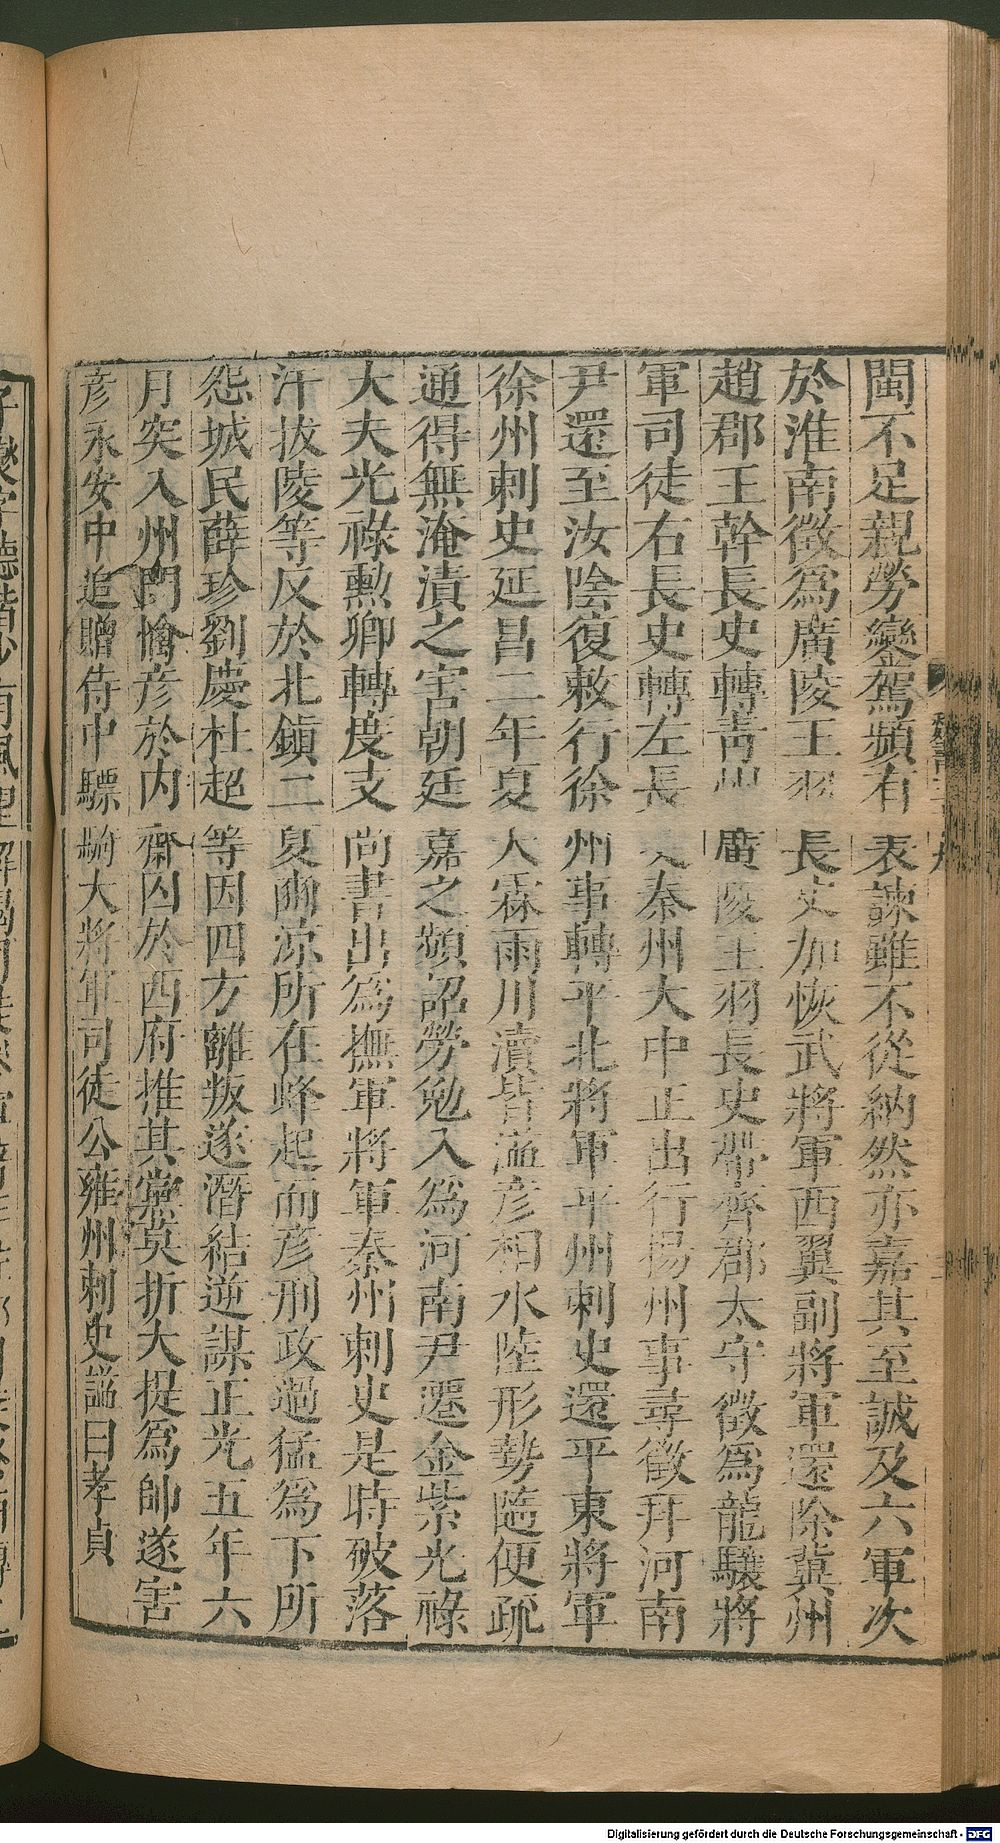 閩不足親勞鑾駕頻有表諫雖不從納然亦嘉其至誠及六軍次
於淮南徵爲廣陵王羽長史加恢武將軍西翼副將軍還除冀州
趙郡王幹長史轉靑州廣陵王羽長史帶齊郡太守徵爲龍驤將
軍司徒右長史轉左長史秦州大中正出行揚州事尋徵拜河南
尹還至汝陰復敕行徐州事轉平北將軍平州刺史還平東將軍
徐州刺史延昌二年夏大霖雨川瀆皆溢彥相水陸形勢隨便疏
通得無淹漬之害朝廷嘉之頻詔勞勉入爲河南尹遷金紫光祿
大夫光祿勳卿轉度支尚書出爲撫軍將軍秦州刺史是時破落
汗拔陵等反於北鎭二夏豳涼所在蜂起而彥刑政過猛爲下所
怨城民薛珍劉慶杜超等因四方離叛遂潛結逆謀正光五年六
月突入州門擒彥於內齋囚於西府推其黨莫折大提爲帥遂害
彥永安中追贈侍中驃騎大將軍司徒公雍州刺史諡曰孝貞
Digitalisierung gefördert durch die Deutsche Forschungsgemeinschaft - DFG